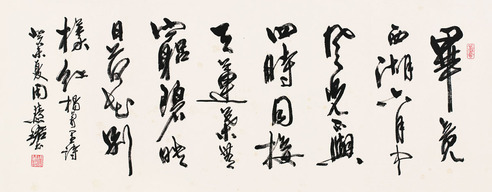 畢竟
西湖六月中
風光不與
四時同接
天蓮葉無
窮碧映
日荷花別
樣紅 楊萬里詩
夏周慧珺